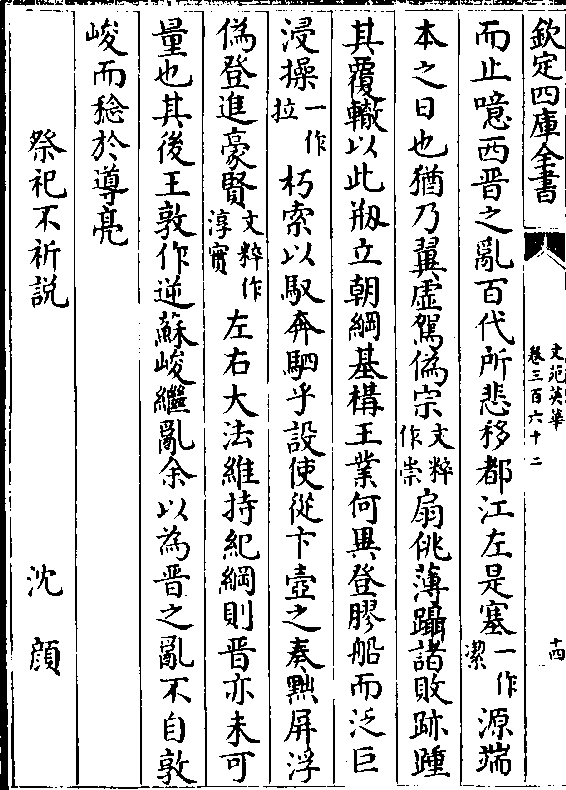 欽定四庫全書
文苑英華
卷三百六十二
十四
而止噫西晋之亂百代所悲移都江左是塞一作潔源端
本之日也猶乃翼虚駕偽宗文粹作崇扇佻薄躡諸敗跡踵
其覆轍以此剏立朝綱基構王業何異登膠船而泛巨
浸操一作拉朽索以馭奔駟乎設使從卞壺之奏黜屏浮
偽登進豪賢文粹作淳實左右大法維持紀綱則晋亦未可
量也其後王敦作逆蘇峻繼亂余以為晋之亂不自敦
峻而稔於導亮
祭祀不祈説 沈顔